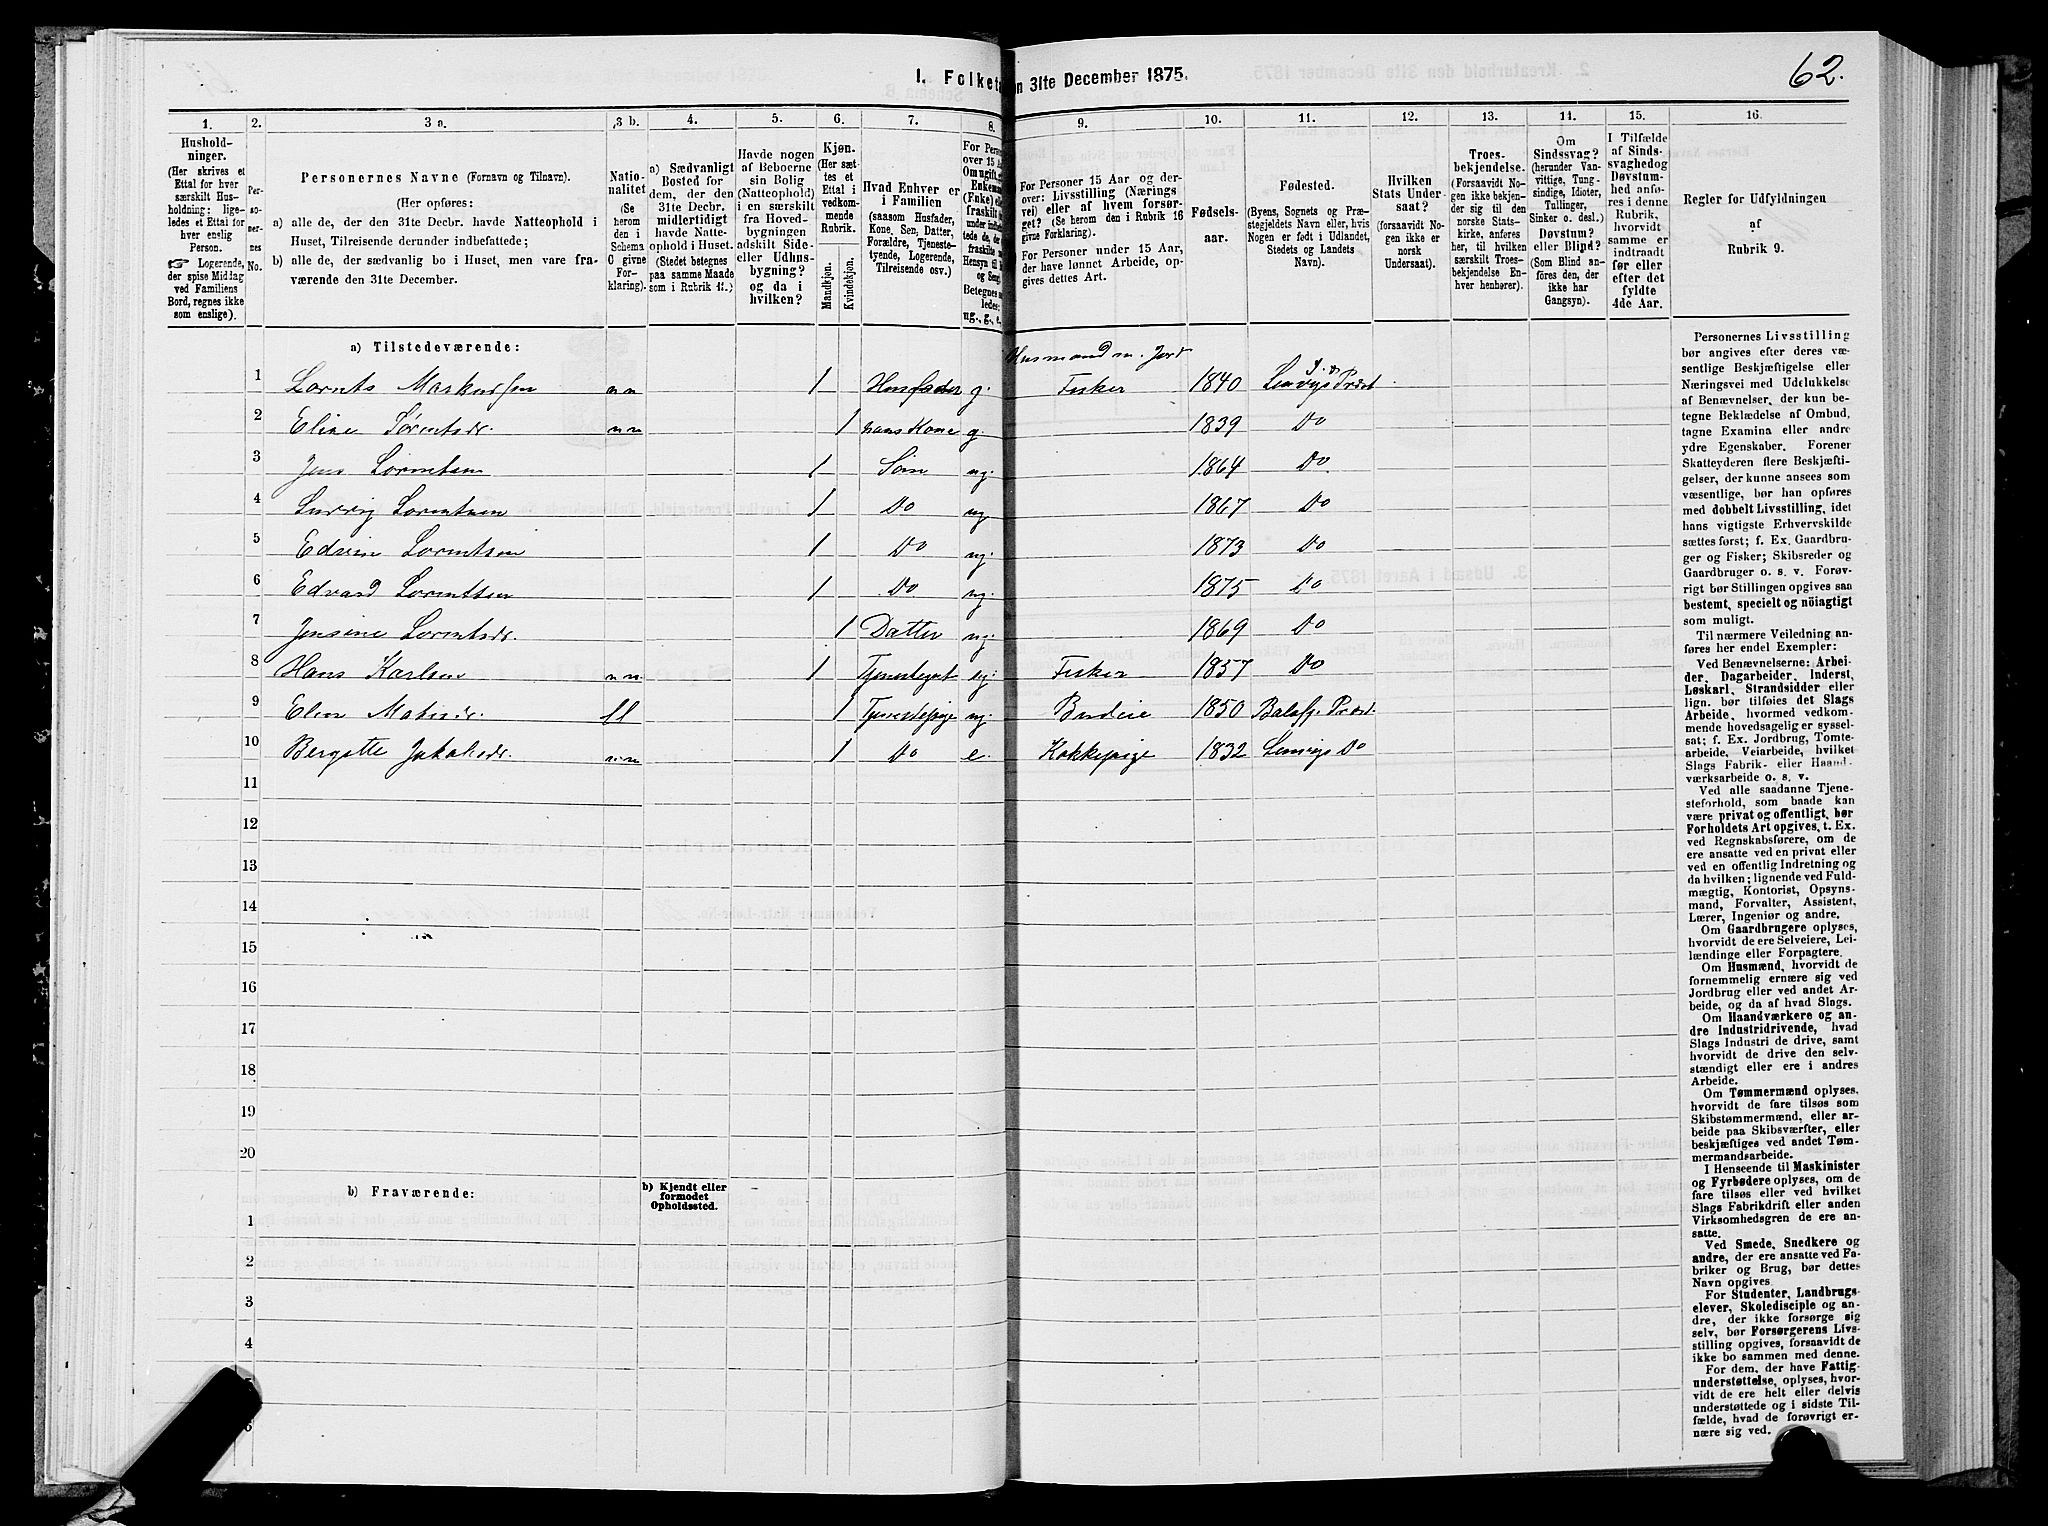 62.
I. Folketa
n 31te December 1875.
1. 2. 3 a. 3 b. 4. 5. 6. 7. 8. 9. 10. 11. 12. 13. 14. 15. 16.
Hushold-
ninger.
(Her skrives et
Ettal for hver
særskilt Hus-
holdning; lige-
ledes et Ettal for
hver enslig
Person.
☞ Logerende,
der spise Middag
ved Familiens
Bord, regnes ikke
som enslige).
Per-
so-
ner-
nes
No.
Personernes Navne (Fornavn og Tilnavn).
(Her opføres:
a) alle de, der den 31te Decbr. havde Natteophold i
Huset, Tilreisende derunder indbefattede;
b) alle de, der sædvanlig bo i Huset, men vare fra-
værende den 31te December.
Natio-
nalitet
(Se
herom
den i
Schema
C givne
For-
klaring).
a) Sædvanligt
Bosted for
dem, der den
31te Decbr.
midlertidigt
havde Natte-
ophold i Huset.
(Stedet betegnes
paa samme Maade
som i Rubrik 11.)
Havde nogen
af Beboerne
sin Bolig
(Natteophold)
i en særskilt
fra Hoved-
bygningen
adskilt Side-
eller Udhus-
bygning?
og da i
hvilken?
Kjøn.
(Her sæt-
tes et
Ettal i
vedkom-
mende
Rubrik.
Mandkjøn.
Kvindekjøn.
Hvad Enhver er
i Familien
(saasom Husfader,
Kone, Søn, Datter,
Forældre, Tjeneste-
tyende, Logerende,
Tilreisende osv.)
For Person
over 15 Aar
Om ugift,
Enkema
(Enke) elle
fraskilt
Betegnes
ledes:
ug., g., e,
For Personer 15 Aar og der-
over: Livsstilling (Nærings
vei) eller af hvem forsør-
get? (Se herom den i Rubrik 16
givne Forklaring).
For Personer under 15 Aar,
der have lønnet Arbeide, op-
gives dettes Art.
Fødsels-
aar.
Fødested.
(Byens, Sognets og Præ-
stegjeldets Navn eller, hvis
Nogen er født i Udlandet,
Stedets og Landets
Navn).
Hvilken
Stats Under-
saat?
(forsaavidt No-
gen ikke er
norsk
Undersaat).
Troes-
bekjendelse.
(Forsaavidt No-
gen ikke bekjen-
der sig til den
norske Stats-
kirke, anføres
her, til hvilken
særskilt Troes-
bekjendelse En-
hver henhører).
Om
Sindssvag?
(herunder Van-
vittige, Tung-
sindige, Idioter,
Tullinger,
Sinker o. desl.)
Døvstum?
eller Blind?
(Som Blind an-
føres den, der
ikke har
Gangsyn).
I Tilfælde
af Sinds-
svaghed og
Døvstum-
hed anfø-
res i denne
Rubrik,
hvorvidt
samme er
indtraadt
før eller
efter det
fyldte
4de Aar.
Regler for Udfyldningen
af
Rubrik 9.
a) Tilstedeværende:
Husmand m. Jord
1 Lornts Markussen nn 1 Husfader g. Fisker 1840 Lenvigs Præst.
2 Eline Lorntsdr. nn 1 hans Kone g. 1839 Do
3 Jens Lorntsen 1 Søn ug. 1864 Do
4 Lorntsen 1 Do ug 1867 Do
5 Edvin Lorntsen 1 Do ug. 1873 Do
6 Edvard Lorntsen 1 Do ug. 1875 Do
7 Jensine Lorntsdr. 1 Datter ug. 1869 Do
8 Hans Karlsen nn 1 ug. Fisker 1857 Do
9 Elen ll 1 Tjenestepige ug. Budeie 1850 Balsfj. Præst.
10 Jakobsdr. nn 1 Do e. Kokkepige 1832 Lenvigs Do
11
12
13
14
15
16
17
18
19
20
b) Fraværende:
b) Kjendt eller
formodet
Opholdssted.
1
2
3
4
5
6
Personernes Livsstilling
bør angives efter deres væ-
sentlige Beskjæftigelse eller
Næringsvei med Udelukkelse
af Benævnelser, der kun be-
tegne Beklædelse af Ombud,
tagne Examina eller andre
ydre Egenskaber. Forener
Skatteyderen flere Beskjæfti-
gelser, der kunne ansees som
væsentlige, bør han opføres
med dobbelt Livsstilling, idet
hans vigtigste Erhvervskilde
sættes først; f. Ex. Gaardbru-
ger og Fisker; Skibsreder og
Gaardbruger o. s. v. Forøv-
rigt bør Stillingen opgives saa
bestemt, specielt og nöiagtigt
som muligt.
Til nærmere Veiledning an-
føres her endel Exempler:
Ved Benævnelserne: Arbei-
der, Dagarbeider, Inderst,
Løskarl, Strandsidder eller
lign. bør tilføies det Slags
Arbeide, hvormed vedkom-
mende hovedsagelig er syssel-
sat; f. Ex. Jordbrug, Tomte-
arbeide, Veiarbeide, hvilket
Slags Fabrik- eller Haand-
værksarbeide o. s. v.
Ved alle saadanne Tjene-
steforhold, som baade kan
være privat og offentligt, bør
Forholdets Art opgives, t. Ex.
ved Regnskabsførere, om de
ere ansatte ved en privat eller
ved en offentlig Indretning og
da hvilken; lignende ved Fuld-
mægtig, Kontorist, Opsyns-
mand, Forvalter, Assistent,
Lærer, Ingeniør og andre.
Om Gaardbrugere oplyses,
hvorvidt de ere Selveiere, Lei-
lændinge eller Forpagtere.
Om Husmænd, hvorvidt de
fornemmelig ernære sig ved
Jordbrug eller ved andet Ar-
beide, og da af hvad Slags.
Om Haandværkere og an-
dre Industridrivende, hvad
Slags Industri de drive, samt
hvorvidt de drive den selv-
stændigt eller ere i andres
Arbeide.
Om Tømmermænd oplyses,
hvorvidt de fare tilsøs som
Skibstømmermænd, eller ar-
beide paa Skibsværfter, eller
beskjæftiges ved andet Tøm-
mermandsarbeide.
I Henseende til Maskinister
og Fyrbødere oplyses, om de
fare tilsøs eller ved hvilket
Slags Fabrikdrift eller anden
Virksomhedsgren de ere an-
satte.
Ved Smede, Snedkere og
andre, der ere ansatte ved Fa-
briker og Brug, bør dettes
Navn opgives.
For Studenter, Landbrugs-
elever, Skoledisciple og an-
dre, der ikke forsørge sig
selv, bør Forsørgerens Livs-
stilling opgives, forsaavidt de
ikke bo sammen med denne.
For dem, der have Fattig-
understøttelse, oplyses, hvor-
vidt de ere helt eller delvis
understøttede og i sidste Til-
fælde, hvad de forøvrigt er-
nære sig ved.